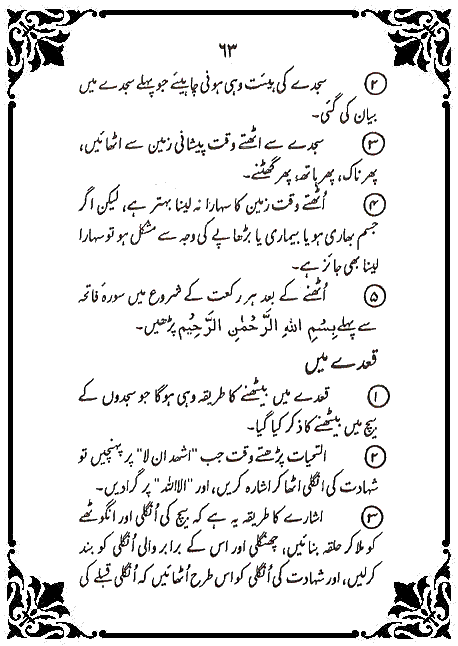 ۶۳
۲ سجدے کی ہیئت وہی ہونی چاہیئے جو پہلے سجدے میں
بیان کی گئی۔
۳ سجدے سے اٹھتے وقت پیشانی زمین سے اٹھائیں،
پھر ناک، پھر ہاتھ، پھر گھٹنے۔
۴ اُٹھتے وقت زمین کا سہارا نہ لینا بہتر ہے، لیکن اگر
جسم بھاری ہو یا بیماری یا بڑھاپے کی وجہ سے مشکل ہو تو سہارا
لینا بھی جائز ہے۔
۵ اُٹھنے کے بعد ہر رکعت کے شروع میں سورہٴ فاتحہ
سے پہلے بِسْمِ اللهِ الرَّحْمٰنِ الرَّحِيْمِ پڑھیں۔
قعدے میں
۱ قعدے میں بیٹھنے کا طریقہ وہی ہوگا جو سجدوں کے
بیچ میں بیٹھنے کا ذکر کیا گیا۔
۲ التحیات پڑھتے وقت جب "اشھد ان لا" پر پہنچیں تو
شہادت کی انگلی اٹھا کر اشارہ کریں، اور "الا اللہ" پر گرا دیں۔
۳ اشارے کا طریقہ یہ ہے کہ بیچ کی اُنگلی اور انگوٹھے
کو ملا کر حلقہ بنائیں، چھنگلی اور اس کے برابر والی اُنگلی کو بند
کرلیں، اور شہادت کی اُنگلی کو اس طرح اُٹھائیں کہ اُنگلی قبلے کی